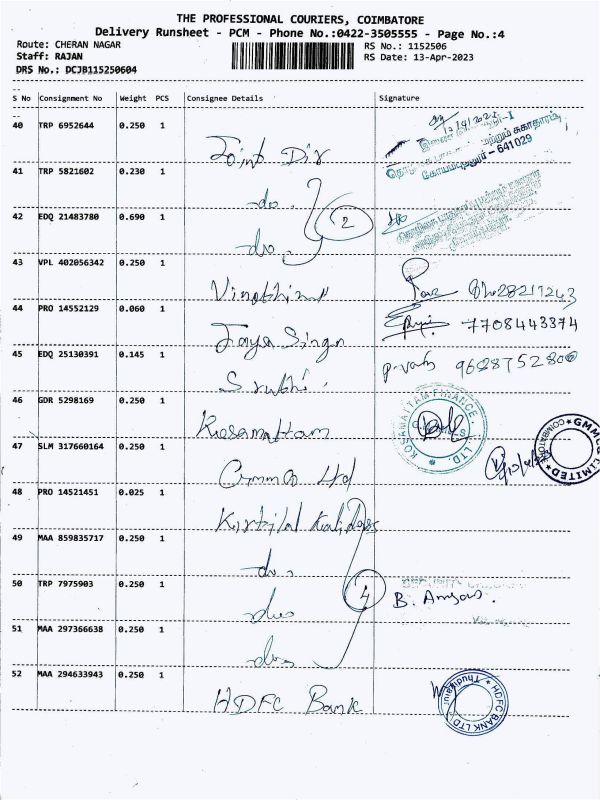 THE PROFESSIONAL COURIERS, COIMBATORE
Delivery Runsheet - PCM - Phone No.:0422-3505555 - Page No.:4
Route: CHERAN NAGAR RS No.: 1152506
Staff: RAJAN RS Date: 13-Apr-2023
DRS No.: DCJB115250604
S No Consignment No Weight PCS Consignee Details Signature
40 TRP 6952644 0.250 1
Joint Dir
641029
41 TRP 5821602 0.230 1
do.
2
42 EDQ 21483780 0.690 1
do.
43 VPL 402056342 0.250 1
44 PRO 14552129 0.060 1
7708443374
Jaya Singh
45 EDQ 25130391 0.145 1
9628752800
46 GDR 5298169 0.250 1
Kosamattam
KOSAMATTAM FINANCE LTD.
47 SLM 317660164 0.250 1
LIMITED
48 PRO 14521451 0.025 1
49 MAA 859835717 0.250 1
do.
50 TRP 7975903 0.250 1
4
B.
51 MAA 297366638 0.250 1
52 MAA 294633943 0.250 1
HDFC Bank
HDFC BANK LTD. Thudiyalur